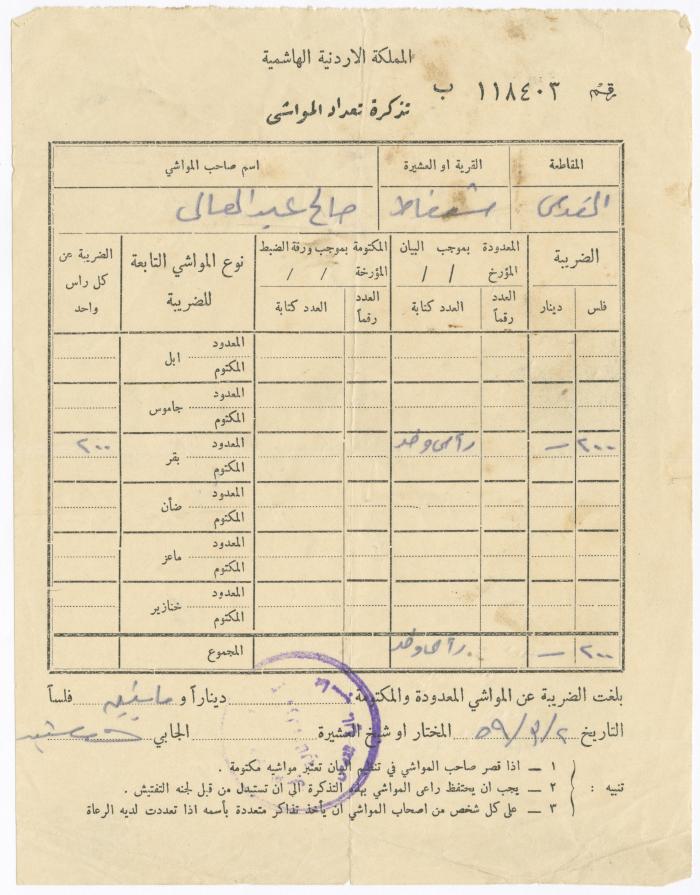 المملكة الاردنية الهاشمية
رقم ١١٨٤٠٣ ب
تذكرة تعداد المواشي
المقاطعة القرية او العشيرة اسم صاحب المواشي
القدس شعفاط صالح عبد العالي
الضريبة المعدودة بموجب البيان المؤرخ / / المكتومة بموجب ورقة الضبط المؤرخة / / نوع المواشي التابعة للضريبة الضريبة عن كل راس واحد
فلس دينار العدد رقماً العدد كتابة العدد رقماً العدد كتابة
المعدود
ابل
المكتوم
المعدود
جاموس
المكتوم
٢٠٠ — رأس واحد المعدود ٢٠٠
بقر
المكتوم
المعدود
ضأن
المكتوم
المعدود
ماعز
المكتوم
المعدود
خنازير
المكتوم
٢٠٠ — رأس واحد المجموع
بلغت الضريبة عن المواشي المعدودة والمكتومة ديناراً و مائتين فلساً
التاريخ ٥٩/٣/٢ المختار او شيخ العشيرة الجابي
تنبيه :
١ — اذا قصر صاحب المواشي في تنظيم البيان تعتبر مواشيه مكتومة .
٢ — يجب ان يحتفظ راعى المواشي بهذه التذكرة الى ان تستبدل من قبل لجنه التفتيش .
٣ — على كل شخص من اصحاب المواشي ان يأخذ تذاكر متعددة بأسمه اذا تعددت لديه الرعاة